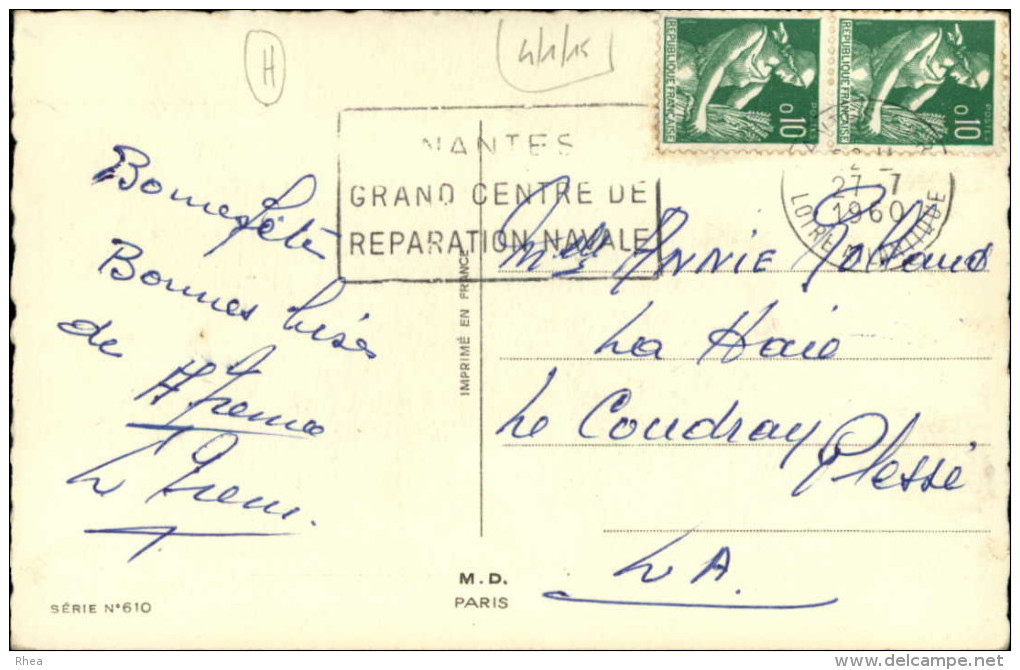 H
NANTES
GRAND CENTRE DE
REPARATION NAVALE
REPUBLIQUE FRANÇAISE
0,10
POSTES
REPUBLIQUE FRANÇAISE
0,10
POSTES
27-7
1960
LOIRE ATLANTIQUE
Bonne fête
Bonnes bises
de
IMPRIMÉ EN FRANCE
Mlle ANNIE
La Haie
Le Coudray
Plessé
L A.
M.D.
PARIS
SÉRIE N°610
Rhea
delcampe.net